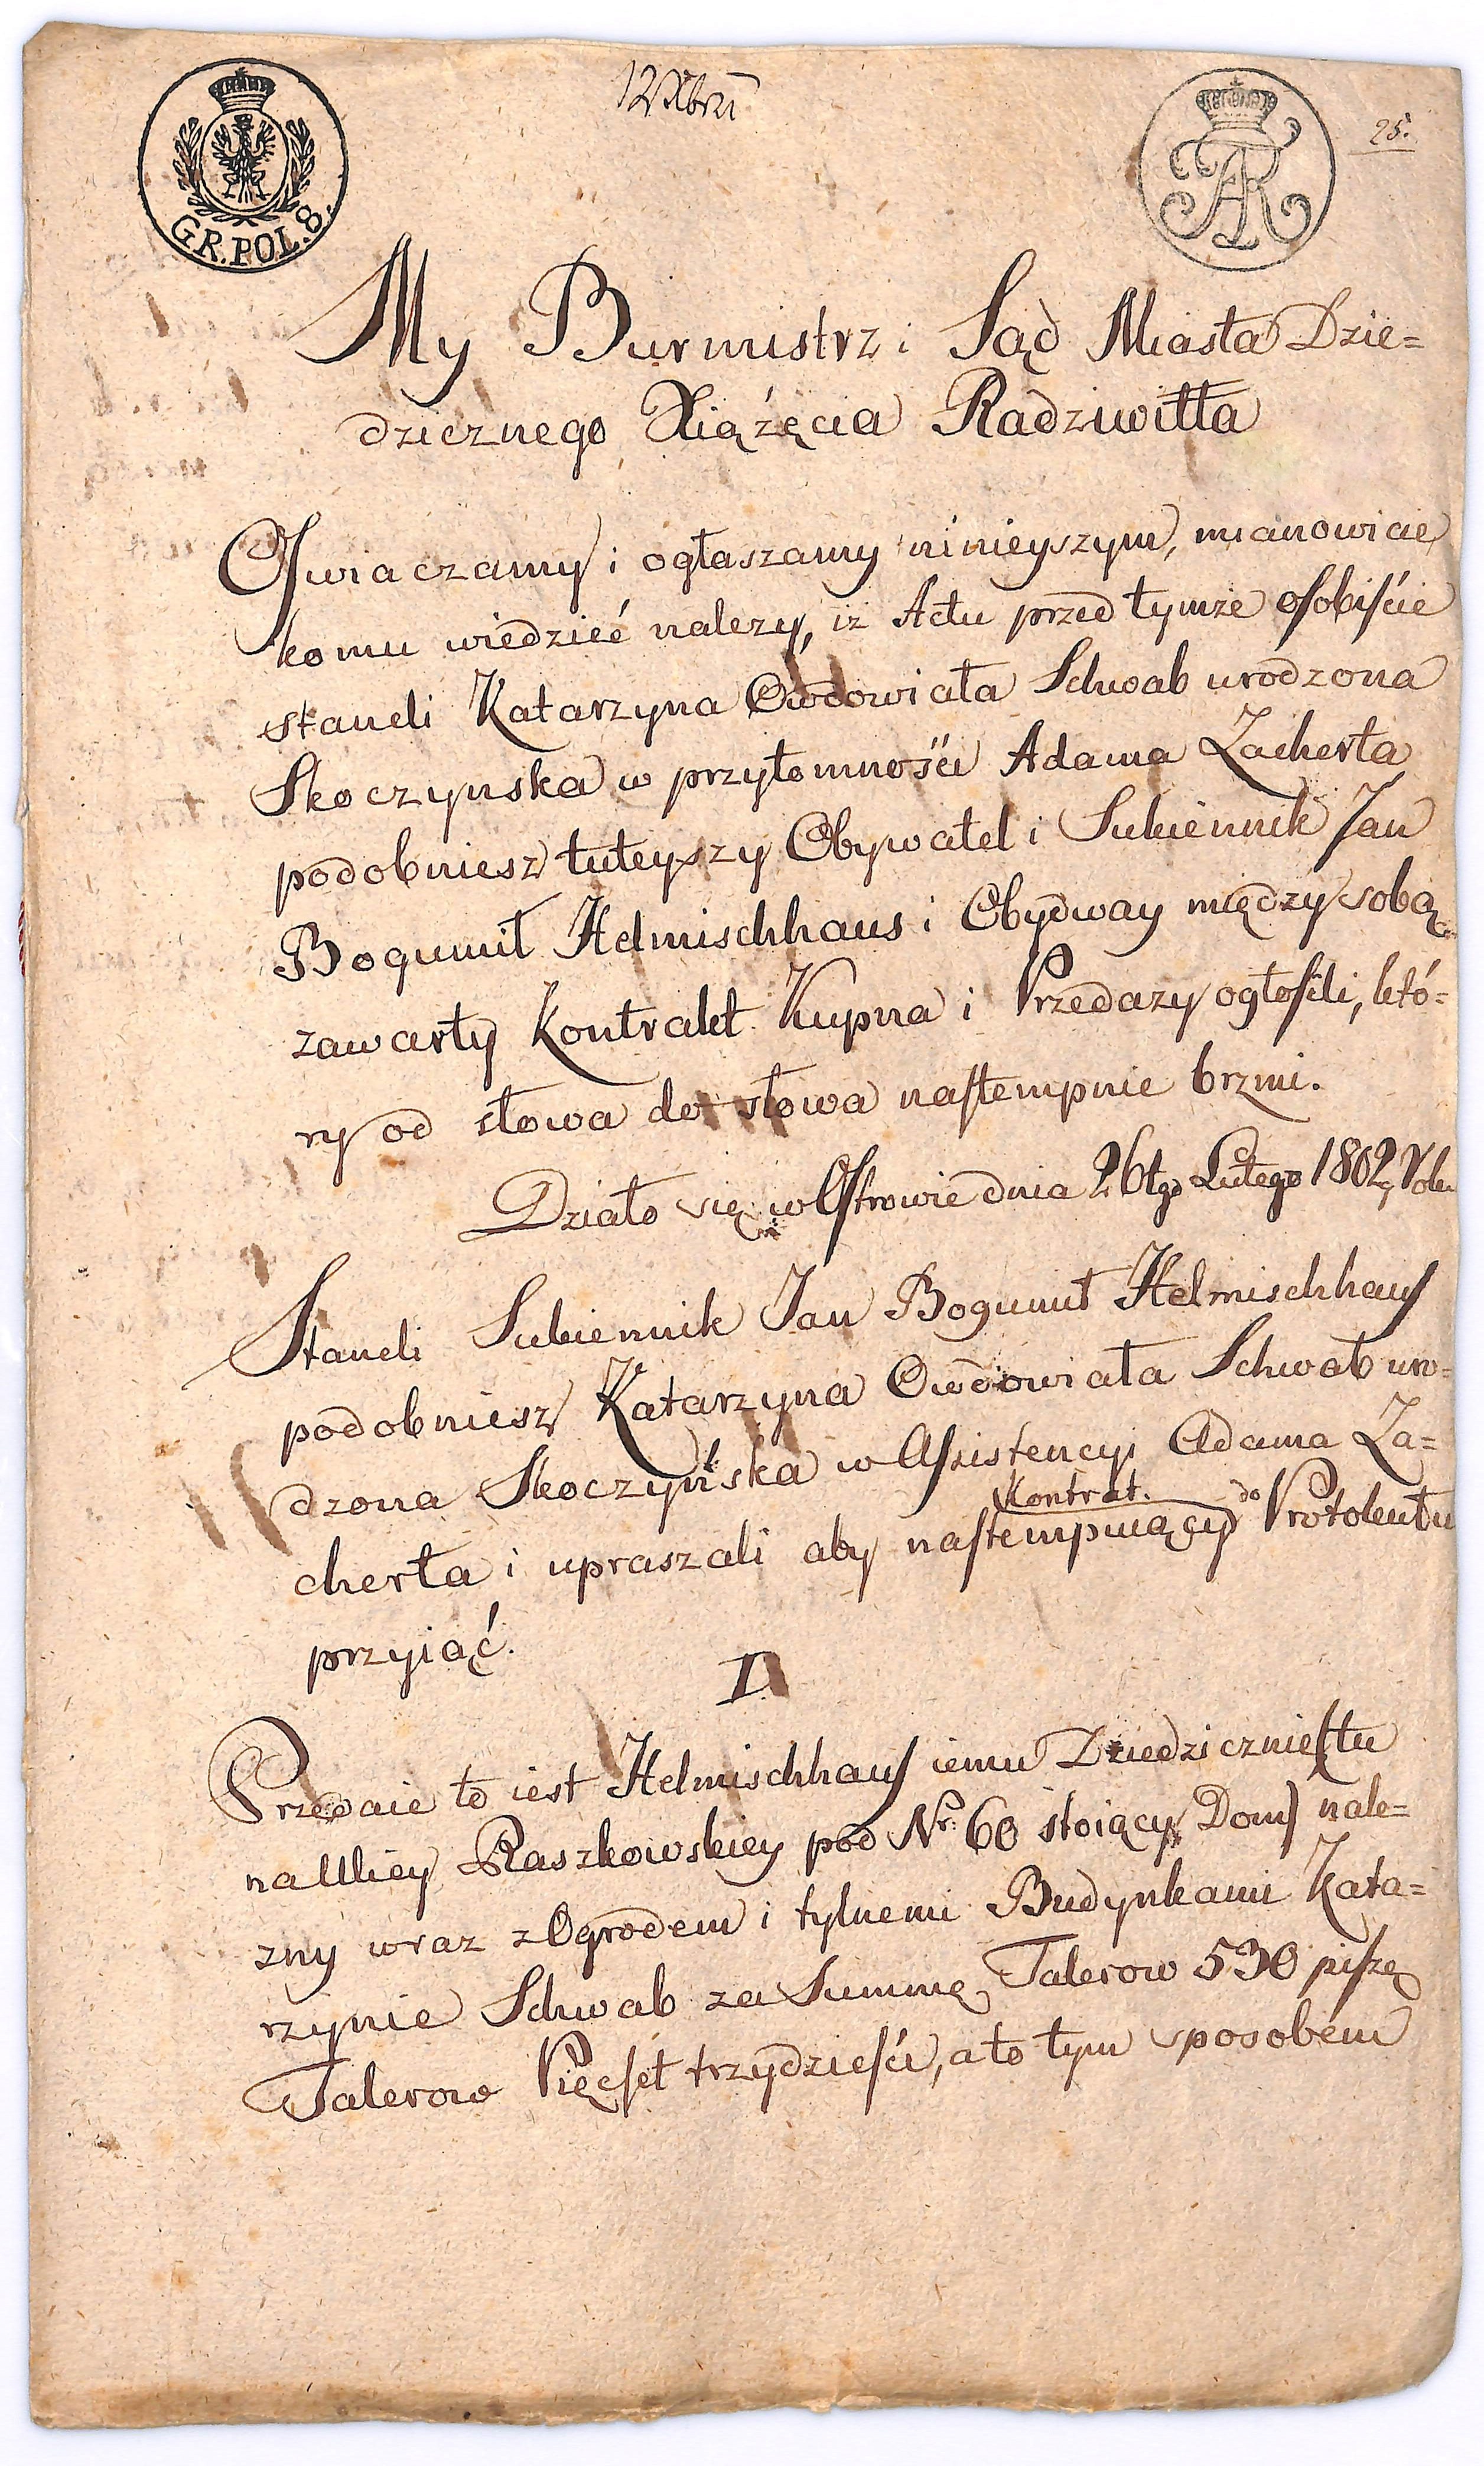 12 Xbru
25.
GR. POL. 8.
My Burmistrz i Sąd Miasta Dzie=
dzicznego Xiążęcia Radziwiłła
Oswiaczamy i ogłaszamy ninieyszym, mianowicie
komu wiedzieć nalezy, iz Actu przed tymże osobiście
staneli Katarzyna Owdowiała Schwab urodzona
Skoczynska w przytomności Adama Zacherta
podobniesz tuteyszy Obywatel i Sukiennik Jan
Bogumił Helmischhaus i Obydway między sobą
zawarty Kontrakt Kupna i Przedazy ogłosili, któ=
ry od słowa do słowa nastempnie brzmi.
Działo się w Ostrowie dnia 26tgo Lutego 1802
Staneli Sukiennik Jan Bogumił Helmischhaus
podobniesz Katarzyna Owdowiała Schwab uro=
dzona Skoczyńska w Assistencyi Adama Za=
Kontrat.
cherta i upraszali aby nastempuiący do Protokułu
przyiąć.
I.
Przedaie to iest Helmischhaus iemu Dziedzicznie tu
na Ulicy Raszkowskiey pod Nr. 60 stoiący Dom nale=
zny wraz z Ogrodem i tylnemi Budynkami Kata=
rzynie Schwab za Summę Talerow 530 piszę
Talerow Pięcset trzydzieści, a to tym sposobem